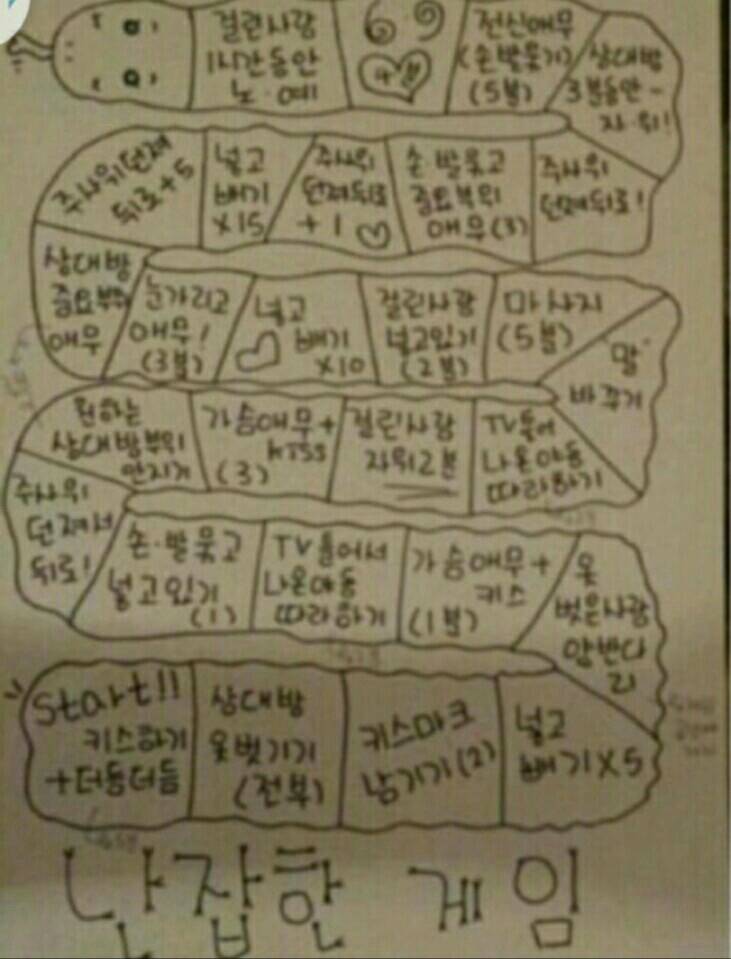 걸린사람
1시간동안
노·예
69
전신애무
(손발묶기)
(5분)
상대방
3분동안-
자·위!
주사위던져
뒤로+5
넣고
빼기
x15
주사위
던져뒤로
+1
손·발묶고
중요부위
애무(3)
주사위
던져뒤로!
상대방
중요부위
애무
눈가리고
애무!
(3분)
넣고
빼기
x10
걸린사람
넣고있기
(2분)
마사지
(5분)
"말"
바꾸기
원하는
상대방부위
만지기
가슴애무+
kiss
(3)
걸린사람
자위2분
TV틀어
나온야동
따라하기
주사위
던져서
뒤로!
손·발묶고
넣고있기
(1)
TV틀어서
나온야동
따라하기
가슴애무+
키스
(1분)
옷
벗은사람
앞반다
리
Start!!
키스하기
+더듬더듬
상대방
옷벗기기
(전부)
키스마크
남기기(2)
넣고
빼기X5
난잡한 게임